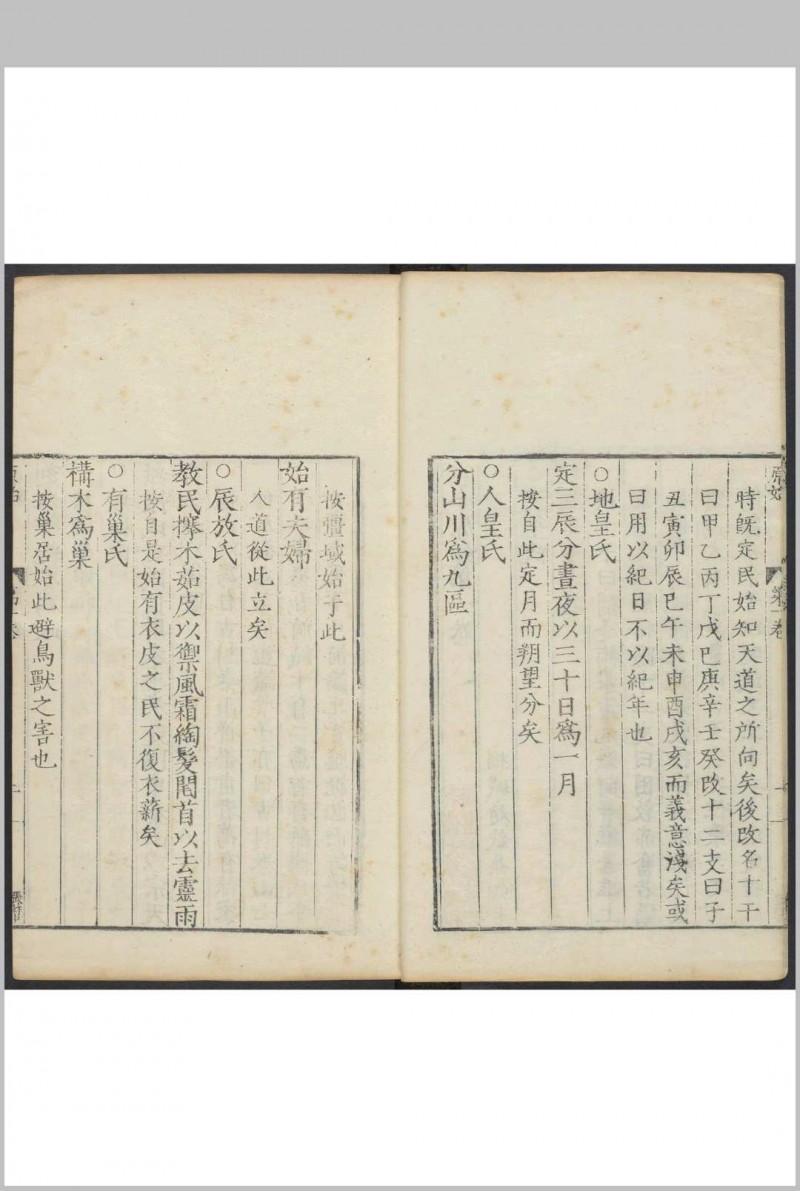 時旣定民始知天道之所向矣後改名十干
曰甲乙丙丁戊巳庚辛壬癸改十二支曰子
丑寅卯辰巳午未申酉戌亥而義意淺矣或
曰用以紀日不以紀年也
○地皇氏
定三辰分晝夜以三十日爲一月
按自此定月而朔望分矣
○人皇氏
分山川爲九區
按疆域始于此
始有夫婦
人道從此立矣
○辰放氏
教民㩴木茹皮以禦風霜綯髮閏首以去靈雨
按自是始有衣皮之民不復衣薪矣
○有巢氏
構木爲巢
按巢居始此避鳥獸之害也